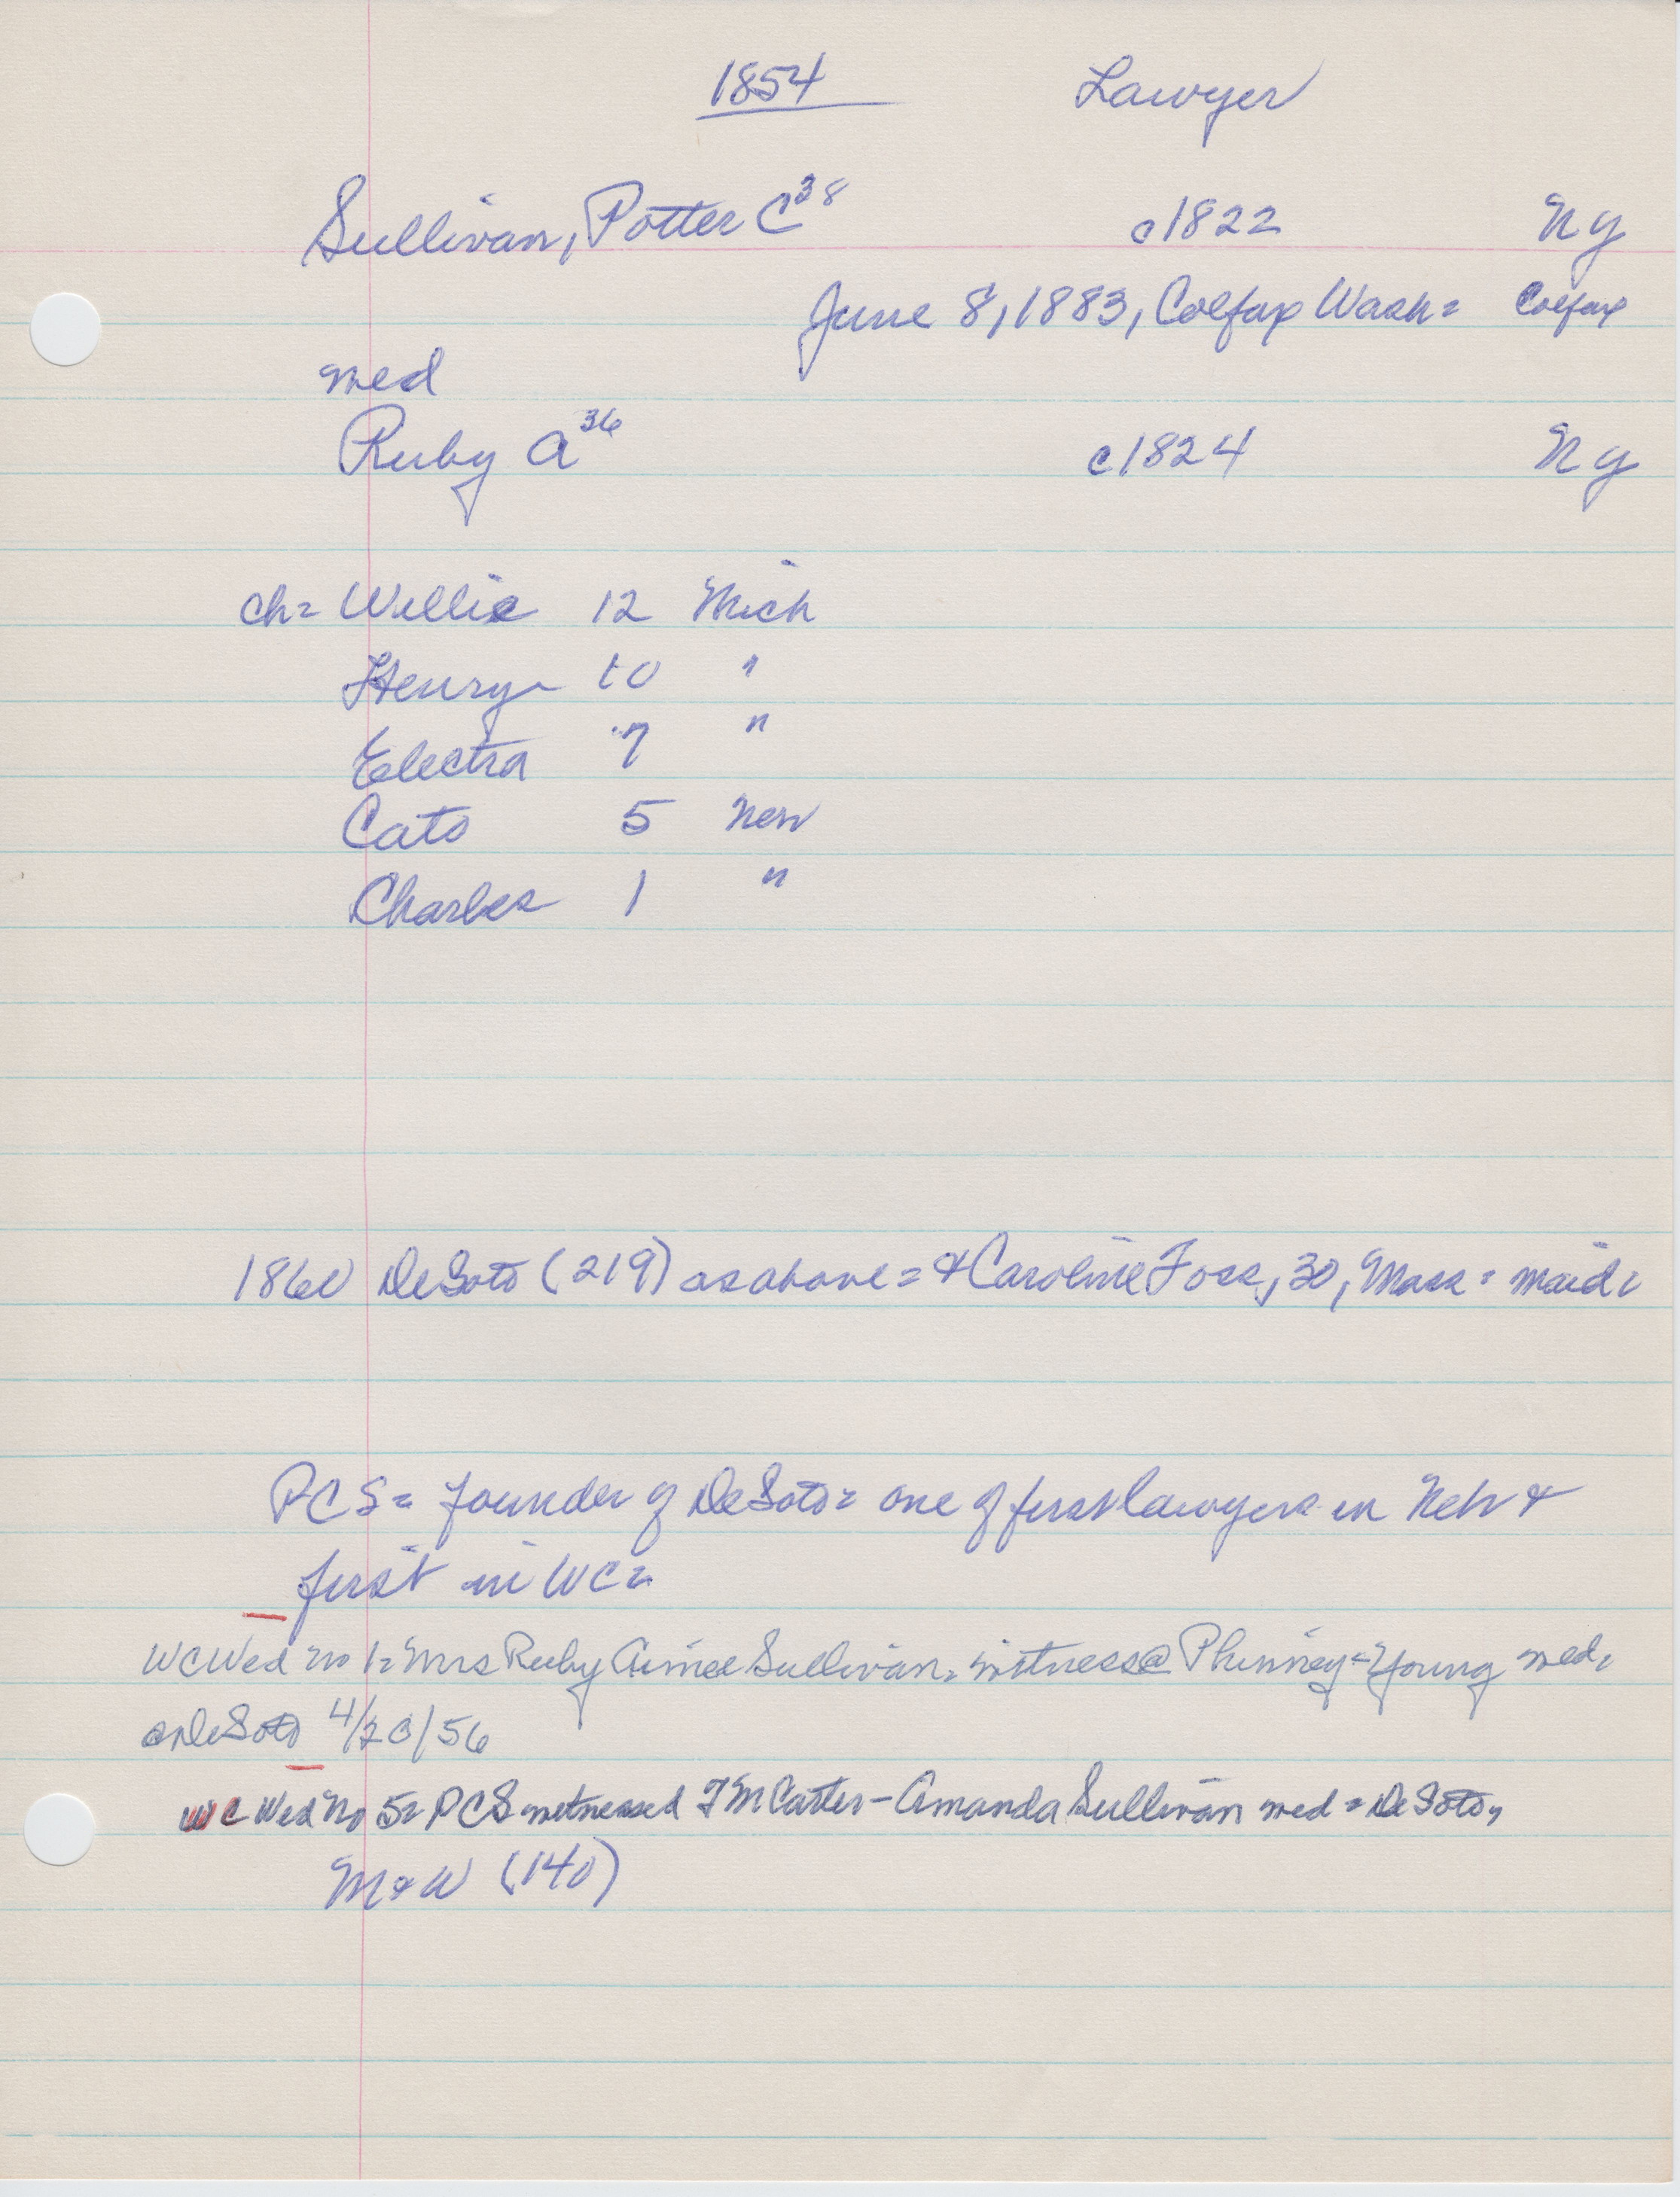 1854 Lawyer
Sullivan, Potter C 38 c1822 Ny
June 8, 1883, Colfax Wash = Colfax
med
Ruby A 36 c1824 Ny
ch = Willie 12 Mich
Henry 10 "
Electra 7 "
Cato 5 Neb
Charles 1 "
1860 DeSoto (219) as above = & Caroline Foss, 30, Mass = maid =
PCS = founder of DeSoto = one of first lawyers in Neb &
first in WC =
WC Wed no 1 = Mrs Ruby Aimee Sullivan = witness @ Phinney = Young med =
@ DeSoto 4/20/56
WC Wed No 5 = PCS witnessed T M Carter - Amanda Sullivan med = DeSoto =
M & W (140)